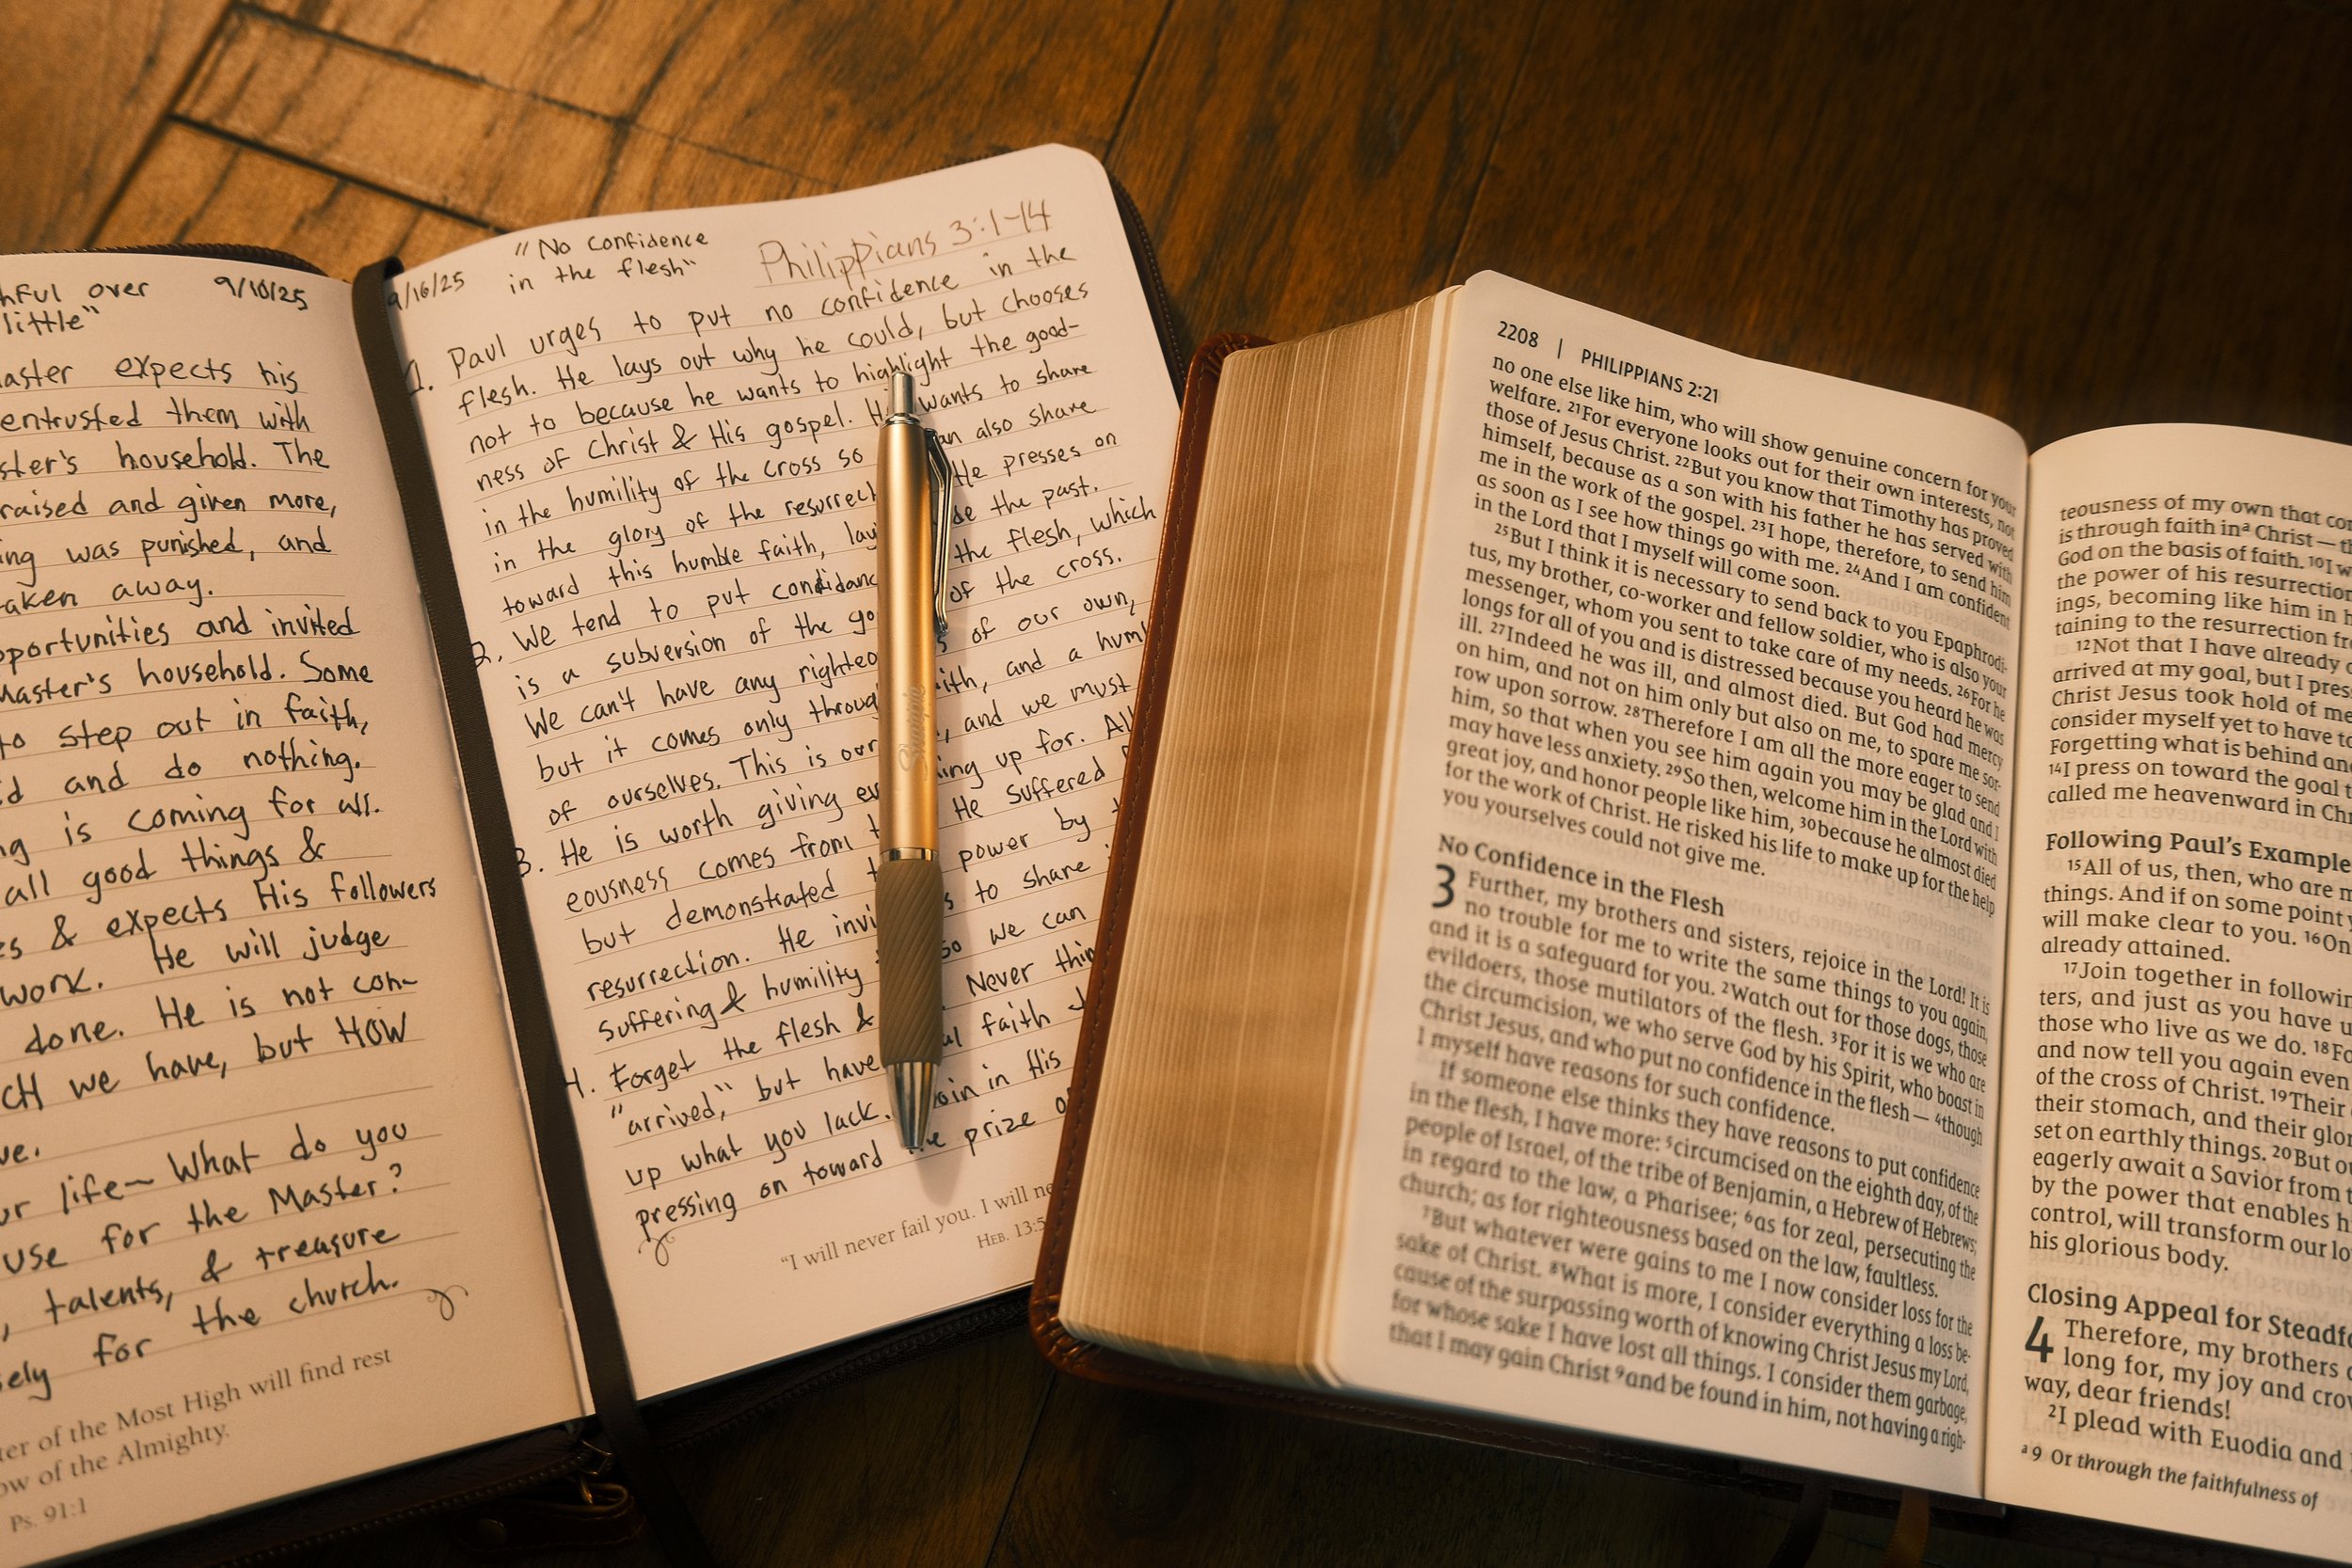 hful over 9/10/25
little"
aster expects his
entrusted them with
ster's household. The
raised and given more,
ing was punished, and
aken away.
pportunities and invited
Master's household. Some
to step out in faith,
d and do nothing.
ng is coming for all.
all good things &
es & expects His followers
work. He will judge
done. He is not con-
CH we have, but HOW
ve.
ur life- What do you
use for the Master?
, talents, & treasure
sely for the church.
ter of the Most High will find rest
ow of the Almighty.
Ps. 91:1
9/16/25 "No confidence
in the flesh"
Philippians 3:1-14
1. Paul urges to put no confidence in the
flesh. He lays out why he could, but chooses
not to because he wants to highlight the good-
ness of Christ & His gospel. He wants to share
in the humility of the cross so an also share
in the glory of the resurrect He presses on
toward this humble faith, lay de the past.
2. We tend to put confidanc the flesh, which
is a subversion of the go of the cross.
We can't have any righteo s of our own,
but it comes only throug ith, and a humb
of ourselves. This is our , and we must
3. He is worth giving ev ing up for. All
eousness comes from He suffered
but demonstrated power by
resurrection. He invi s to share
suffering & humility so we can
4. Forget the flesh & . Never thin
"arrived," but have al faith
up what you lack. oin in His
pressing on toward the prize o
"I will never fail you. I will ne
Heb. 13:5
Sunnie
2208 | PHILIPPIANS 2:21
no one else like him, who will show genuine concern for your
welfare. 21For everyone looks out for their own interests, not
those of Jesus Christ. 22But you know that Timothy has proved
himself, because as a son with his father he has served with
me in the work of the gospel. 23I hope, therefore, to send him
as soon as I see how things go with me. 24And I am confident
in the Lord that I myself will come soon.
25But I think it is necessary to send back to you Epaphrodi-
tus, my brother, co-worker and fellow soldier, who is also your
messenger, whom you sent to take care of my needs. 26For he
longs for all of you and is distressed because you heard he was
ill. 27Indeed he was ill, and almost died. But God had mercy
on him, and not on him only but also on me, to spare me sor-
row upon sorrow. 28Therefore I am all the more eager to send
him, so that when you see him again you may be glad and I
may have less anxiety. 29So then, welcome him in the Lord with
great joy, and honor people like him, 30because he almost died
for the work of Christ. He risked his life to make up for the help
you yourselves could not give me.
No Confidence in the Flesh
3 Further, my brothers and sisters, rejoice in the Lord! It is
no trouble for me to write the same things to you again,
and it is a safeguard for you. 2Watch out for those dogs, those
evildoers, those mutilators of the flesh. 3For it is we who are
the circumcision, we who serve God by his Spirit, who boast in
Christ Jesus, and who put no confidence in the flesh— 4though
I myself have reasons for such confidence.
If someone else thinks they have reasons to put confidence
in the flesh, I have more: 5circumcised on the eighth day, of the
people of Israel, of the tribe of Benjamin, a Hebrew of Hebrews;
in regard to the law, a Pharisee; 6as for zeal, persecuting the
church; as for righteousness based on the law, faultless.
7But whatever were gains to me I now consider loss for the
sake of Christ. 8What is more, I consider everything a loss be-
cause of the surpassing worth of knowing Christ Jesus my Lord,
for whose sake I have lost all things. I consider them garbage,
that I may gain Christ 9and be found in him, not having a righ-
teousness of my own that co
is through faith in a Christ — th
God on the basis of faith. 10I w
the power of his resurrection
ings, becoming like him in h
taining to the resurrection fr
12Not that I have already o
arrived at my goal, but I pres
Christ Jesus took hold of me
consider myself yet to have ta
Forgetting what is behind an
14I press on toward the goal t
called me heavenward in Chr
Following Paul's Example
15All of us, then, who are m
things. And if on some point y
will make clear to you. 16On
already attained.
17Join together in followin
ters, and just as you have u
those who live as we do. 18Fo
and now tell you again even
of the cross of Christ. 19Their
their stomach, and their glor
set on earthly things. 20But ou
eagerly await a Savior from t
by the power that enables h
control, will transform our lo
his glorious body.
Closing Appeal for Steadfa
4 Therefore, my brothers
long for, my joy and crow
way, dear friends!
2I plead with Euodia and
a 9 Or through the faithfulness of